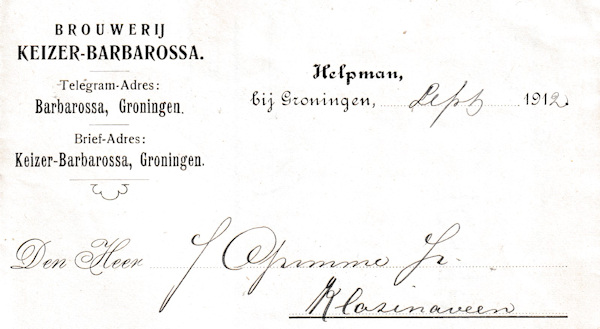 BROUWERIJ
KEIZER-BARBAROSSA.
Telegram-Adres:
Barbarossa, Groningen.
Brief-Adres:
Keizer-Barbarossa, Groningen.
Helpman,
bij Groningen, Sept 1912.
Den Heer J
Klazinaveen